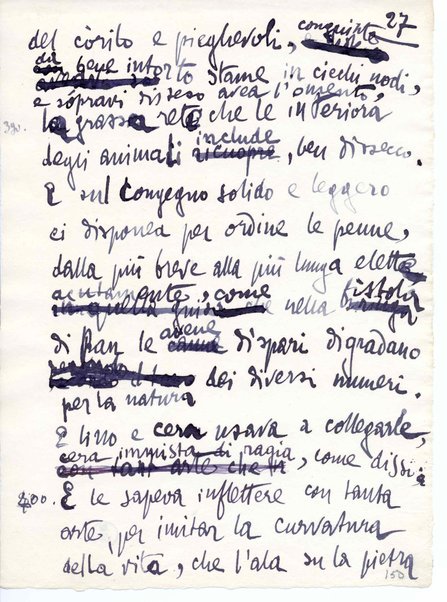 27
del còrilo e pieghevoli, congiunte
da bene intorto stame in ciechi nodi,
e sopravi disteso avea l'omento,
390. la grassa rete che le interiora
degli animali include ricuopre, ben dissecco.
E sul congegno solido e leggero
ei disponea per ordine le penne,
dalla più breve alla più lunga elette
acutamente, come nella fistola
di Pan le avene canne dispari digradano
per la natura dei diversi numeri.
E lino e cera usava a collegarle,
cera immista di ragia, come dissi;
400. E le sapeva inflettere con tanta
arte, per imitar la curvatura
della vita, che l'ala su la pietra
150